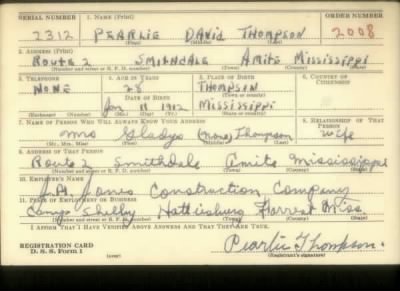 SERIAL NUMBER 1. NAME (Print) ORDER NUMBER
2312 PEARLIE DAVID THOMPSON 2008
(First) (Middle) (Last)
2. ADDRESS (Print)
ROUTE 2 SMITHDALE AMITE MISSISSIPPI
(Number and street or R. F. D. number) (Town) (County) (State)
3. TELEPHONE 4. AGE IN YEARS 5. PLACE OF BIRTH 6. COUNTRY OF CITIZENSHIP
NONE 28 THOMPSON
DATE OF BIRTH (Town or county)
Jan 11 1912 MISSISSIPPI
(Exchange) (Number) (Mo.) (Day) (Yr.) (State or country)
7. NAME OF PERSON WHO WILL ALWAYS KNOW YOUR ADDRESS 8. RELATIONSHIP OF THAT PERSON
Mrs Gladys (none) Thompson Wife
(Mr., Mrs., Miss) (First) (Middle) (Last)
9. ADDRESS OF THAT PERSON
Route 2 Smithdale Amite Mississippi
(Number and street or R. F. D. number) (Town) (County) (State)
10. EMPLOYER'S NAME
J.A. Jones Construction Company
11. PLACE OF EMPLOYMENT OR BUSINESS
Camp Shelby Hattiesburg Forrest Miss.
(Number and street or R. F. D. number) (Town) (County) (State)
I AFFIRM THAT I HAVE VERIFIED ABOVE ANSWERS AND THAT THEY ARE TRUE.
REGISTRATION CARD
D. S. S. Form 1 (over) Pearlie Thompson.
(Registrant's signature)